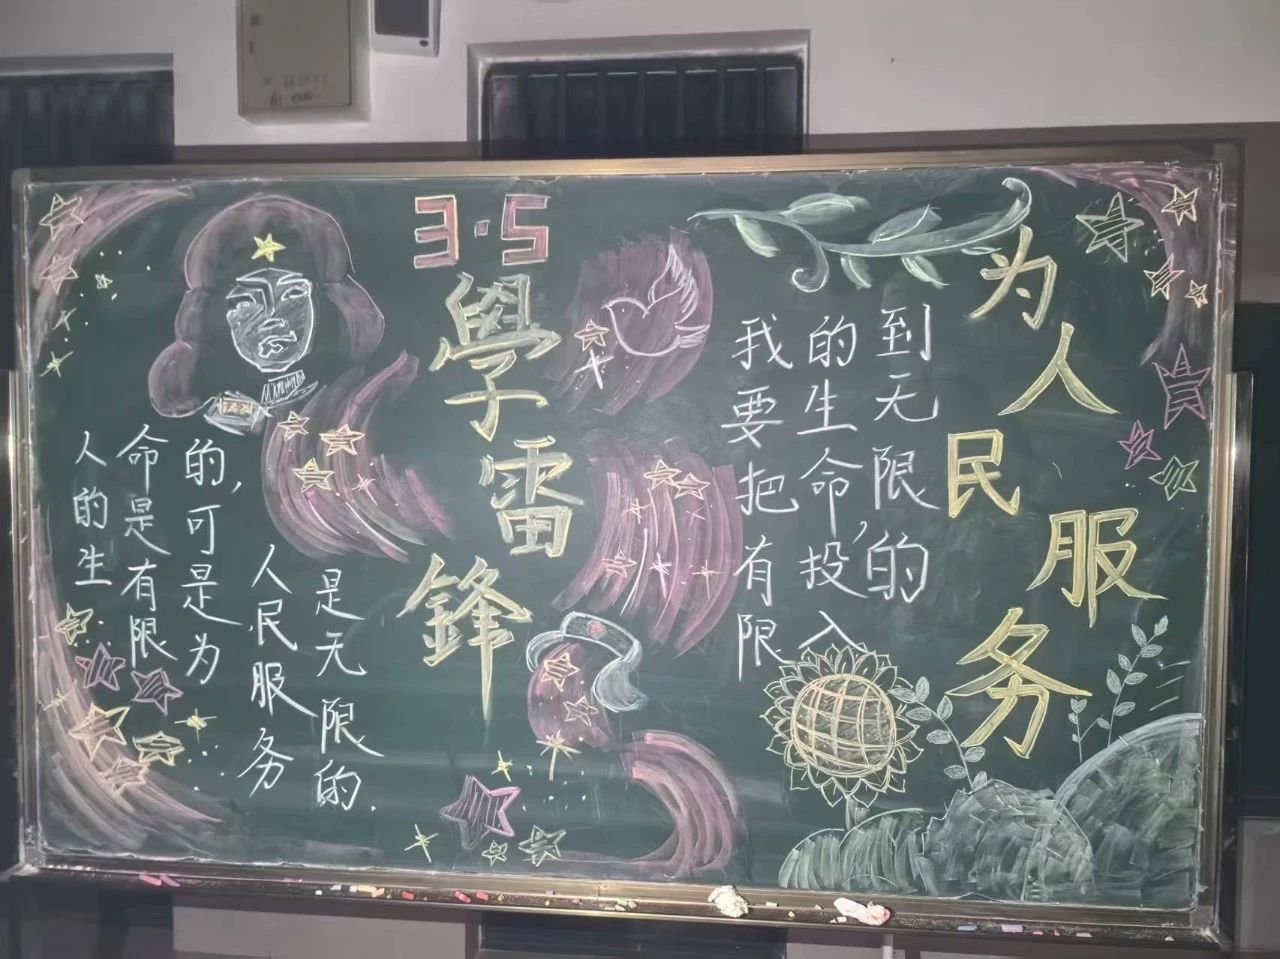 人的生
命是有限
的,可是为
人民服务
是无限的.
3·5
學雷鋒
我要把有限
的生命,投入
到无限的
为人民服务